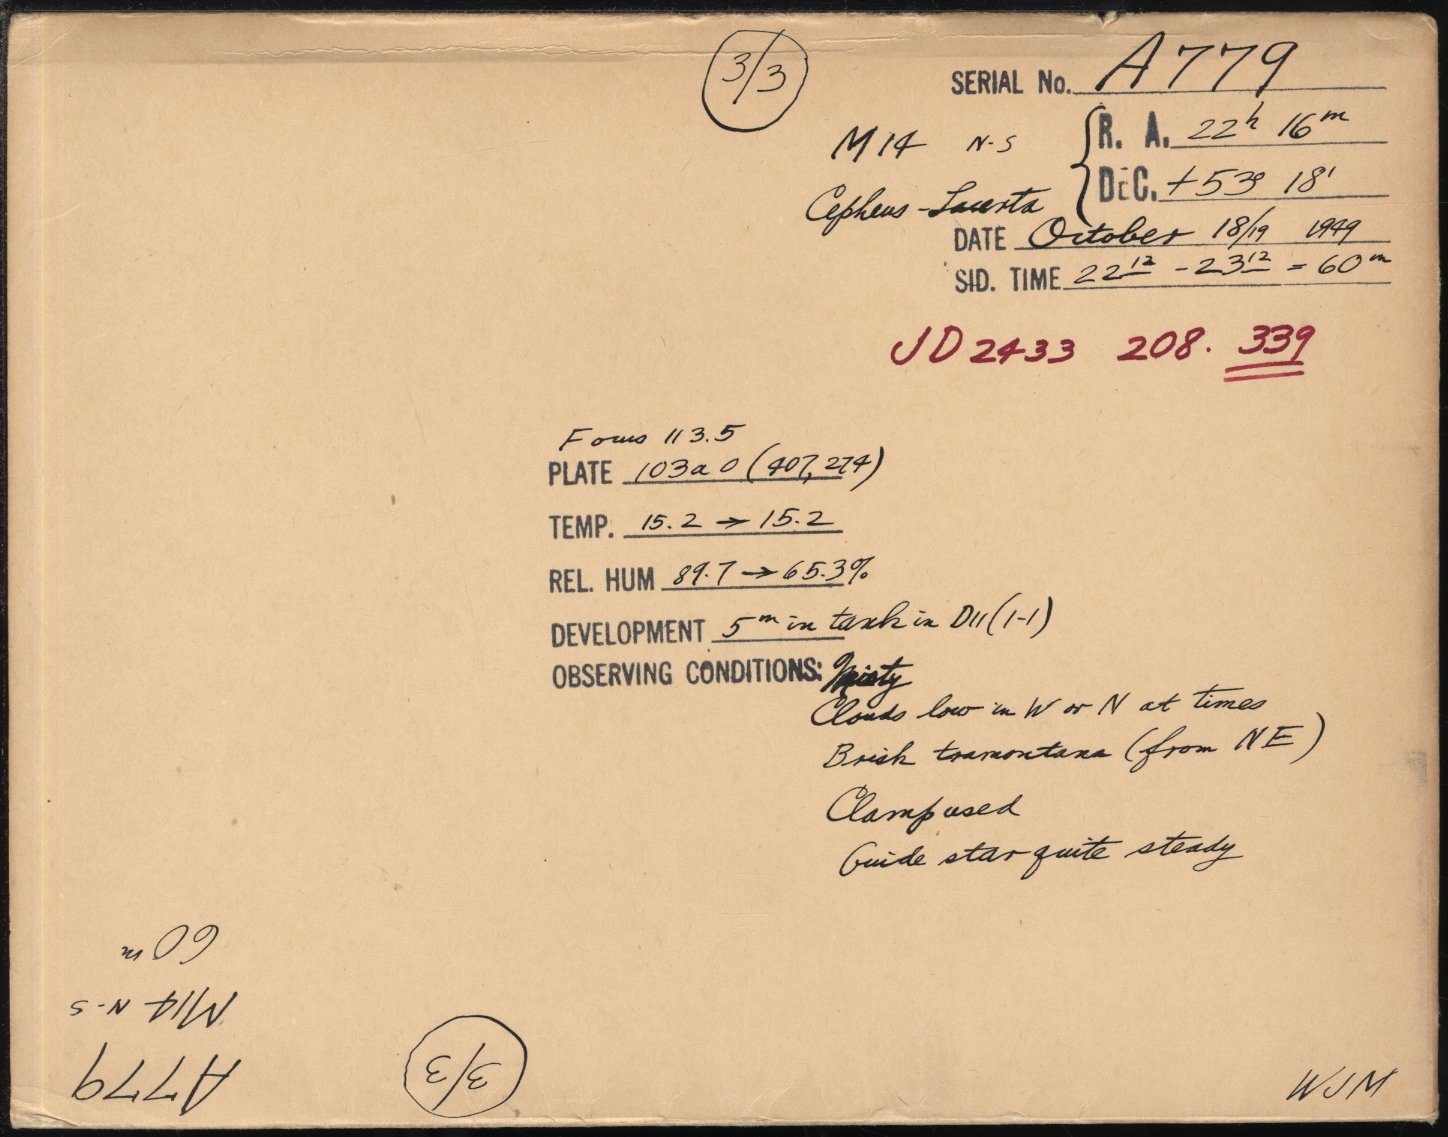 3/3
SERIAL No. A779
M14 N-S
R. A. 22h 16m
DEC. +53° 18'
Cepheus-Lacerta
DATE October 18/19 1949
SID. TIME 22 12 - 23 12 = 60m
JD 2433 208. 339
Focus 113.5
PLATE 103a O (407,274)
TEMP. 15.2 → 15.2
REL. HUM 89.7 → 65.3%
DEVELOPMENT 5m in tank in D11 (1-1)
OBSERVING CONDITIONS: Misty
Clouds low in W or N at times
Brisk tramontana (from NE)
Clamp used
Guide star quite steady
A779
M14 N-S
60m
3/3
WJM